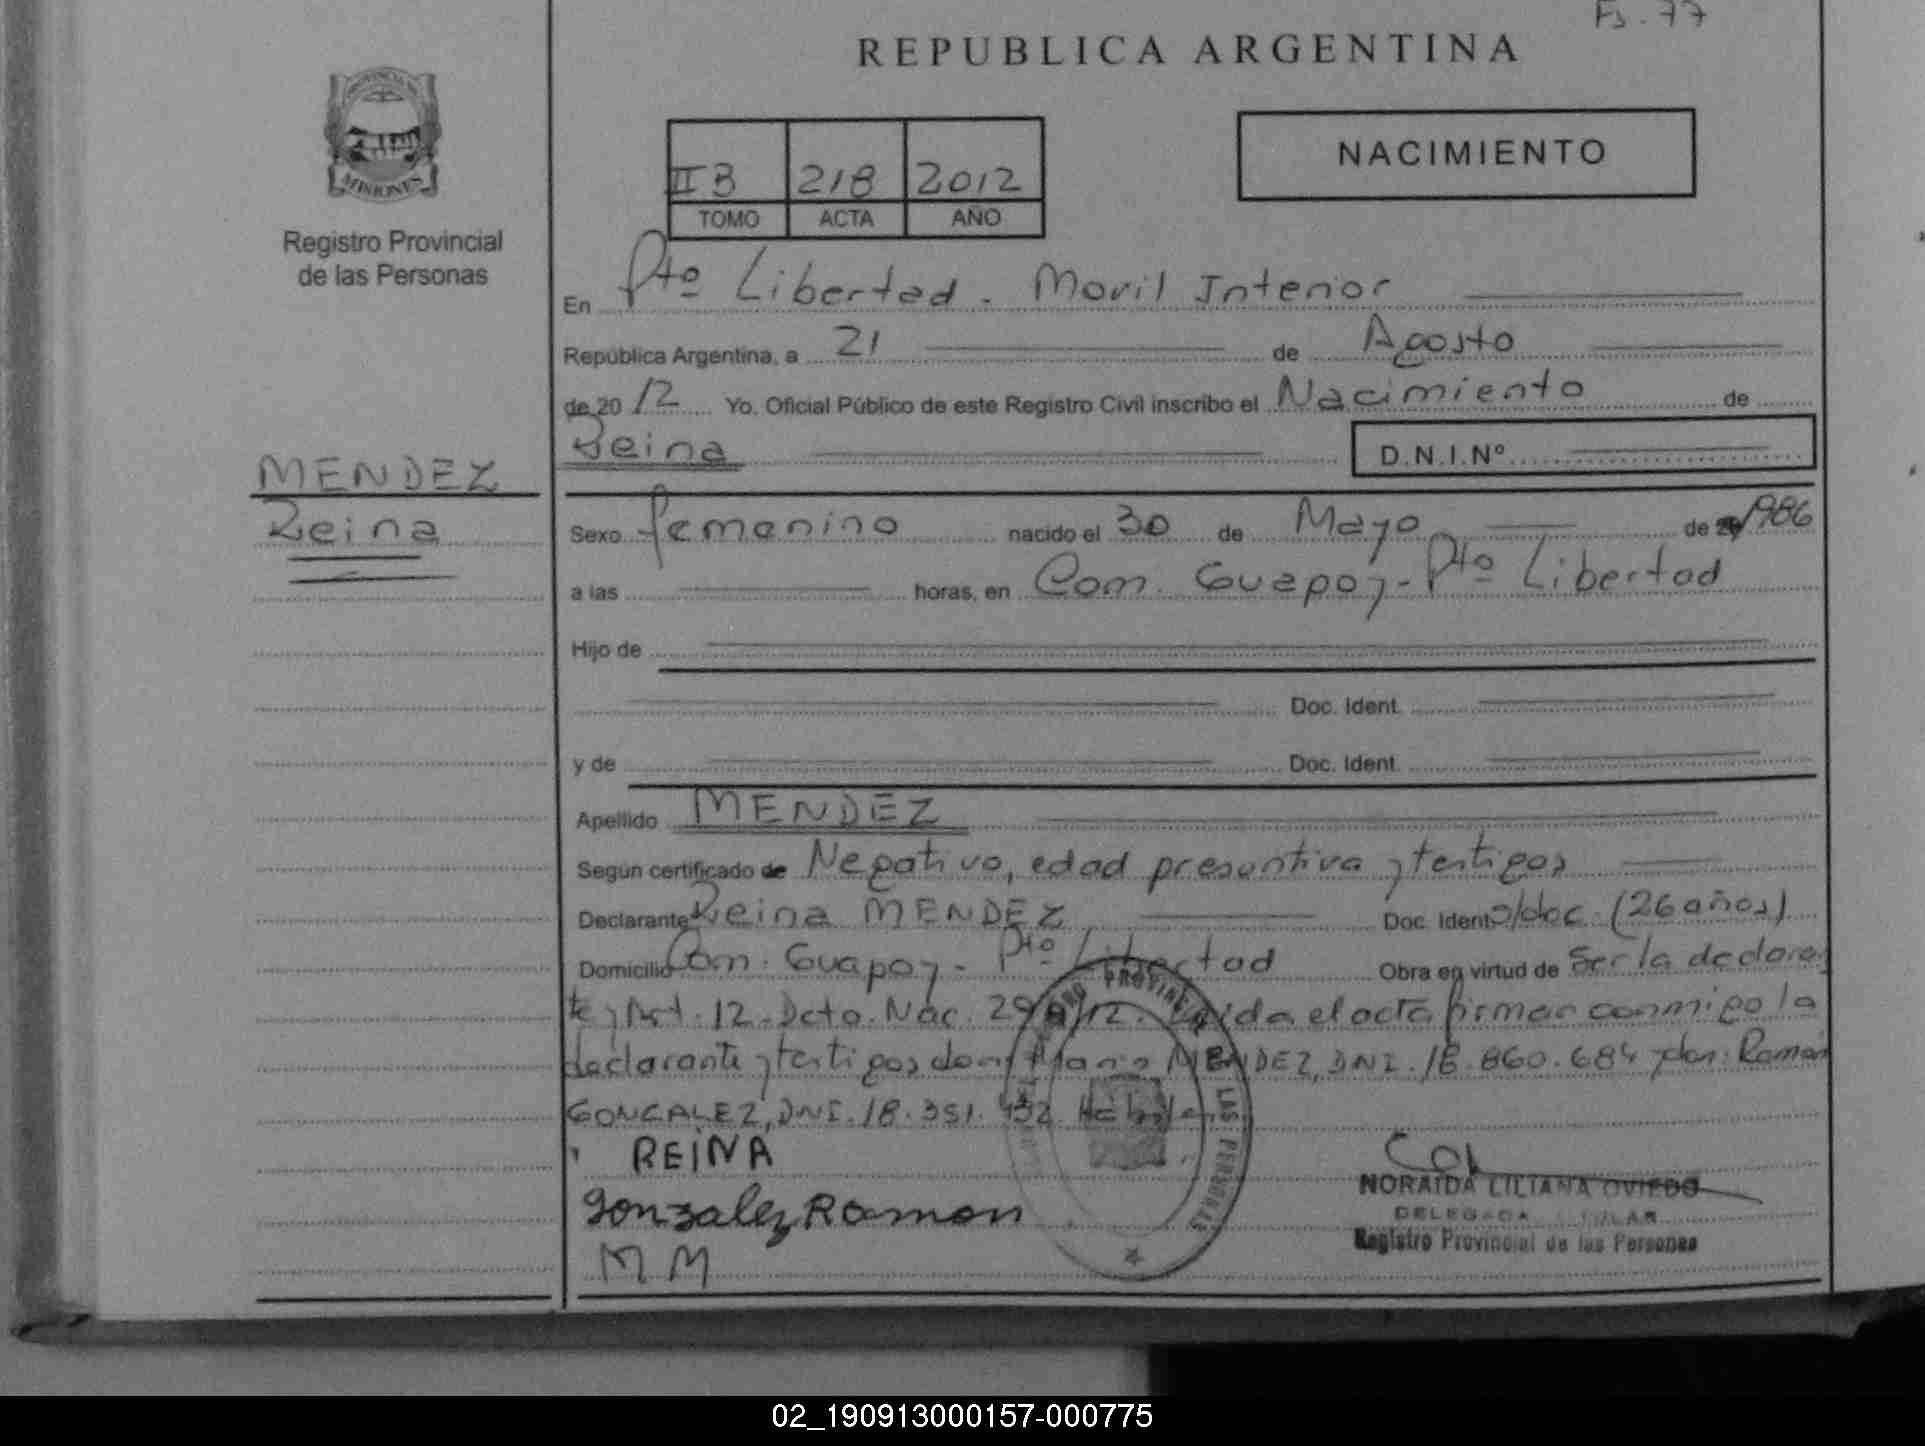 Fs. 77
REPUBLICA ARGENTINA
PROVINCIA
MISIONES
Registro Provincial
de las Personas
II B 218 2012
TOMO ACTA AÑO
NACIMIENTO
En Pto Libertad - Movil Interior
República Argentina, a 21 de Agosto
de 2012 Yo. Oficial Público de este Registro Civil inscribo el Nacimiento de
Reina D.N.I.Nº
MENDEZ
Reina
Sexo femenino nacido el 30 de Mayo de 1986
a las horas, en Com. Guapoy - Pto Libertad
Hijo de
Doc. Ident.
y de Doc. Ident.
Apellido MENDEZ
Según certificado de Negativo, edad presuntiva y testigos
Declarante Reina MENDEZ Doc. Ident. s/doc (26 años)
Domicilio Com. Guapoy - Pto Libertad Obra en virtud de Ser la declaran
te y Art. 12 - Dcto. Nac. /12. Leída el acta firman conmigo la
declarante y testigos don: Mario MENDEZ, DNI. 18.860.684 y don: Ramón
GONCALEZ, DNI. 18.351.932
REINA
Gonzalez Ramon
M M
PROVINCIAL LAS PERSONAS
NORAIDA LILIANA OVIEDO
DELEGADA TITULAR
Registro Provincial de las Personas
02_190913000157-000775